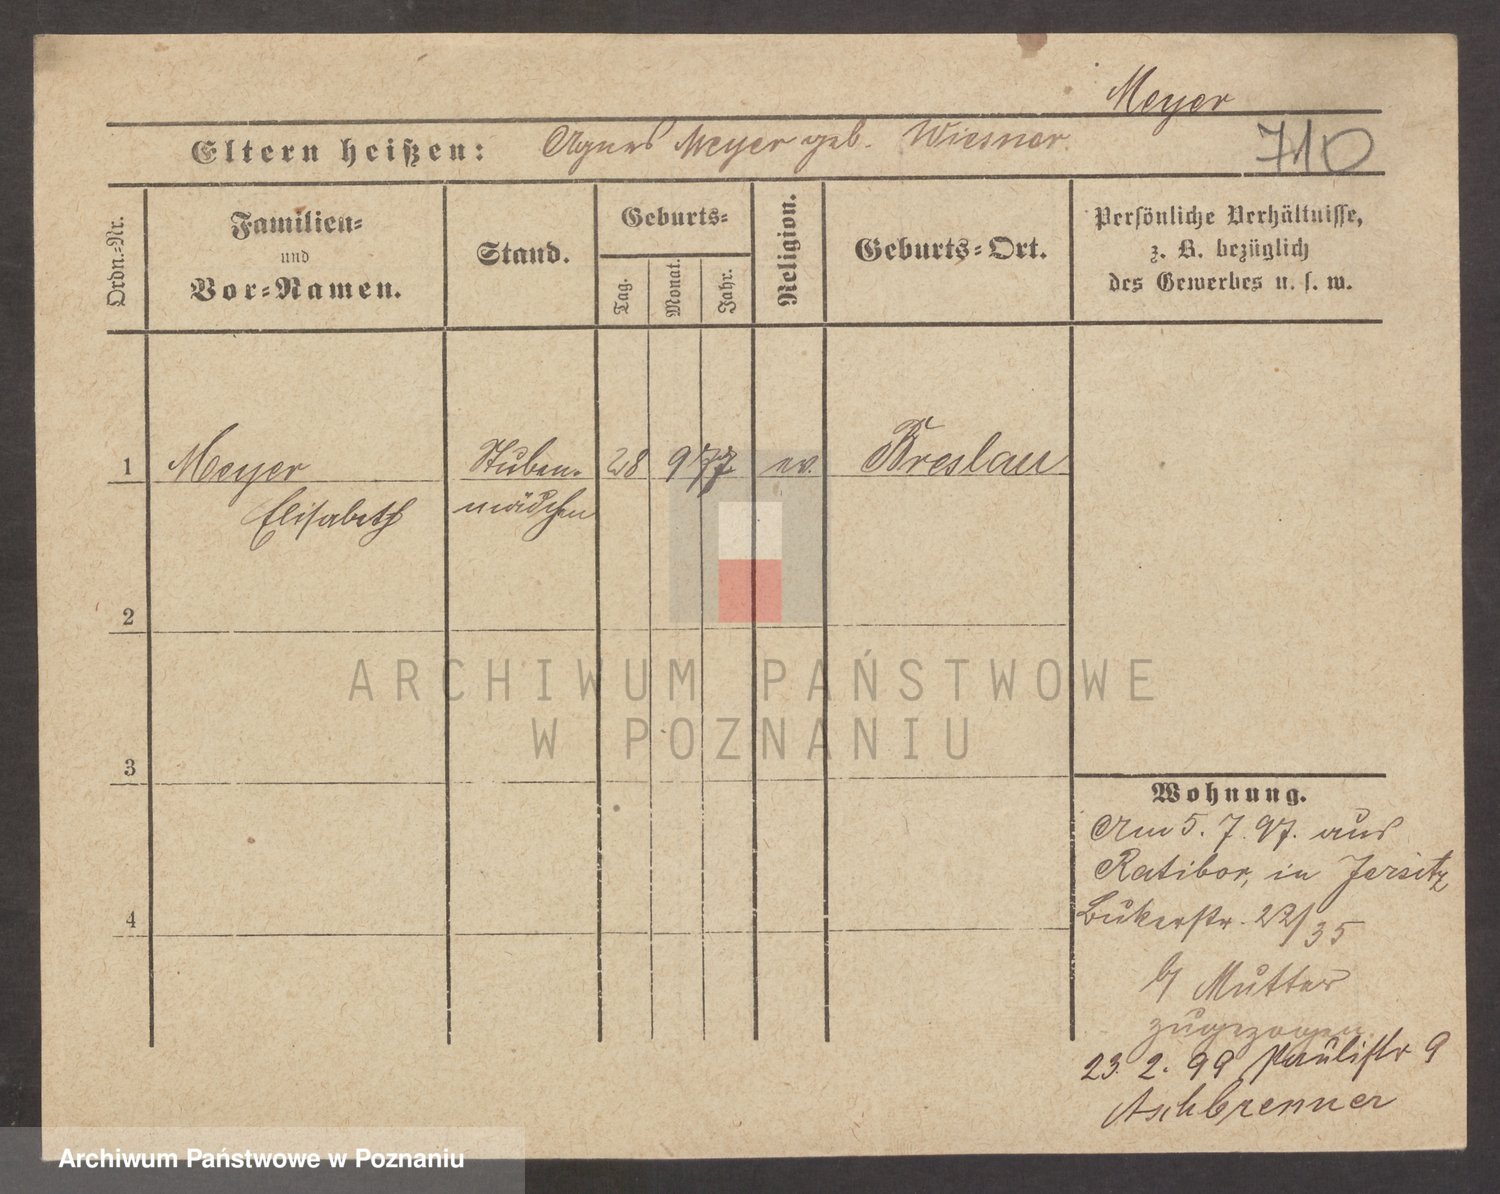 Meyer
Eltern heißen: Agnes Meyer geb. Wiesner.
710
Ordn.-Nr.
Familien-
und
Vor-Namen.
Stand.
Geburts-
Tag.
Monat.
Jahr.
Religion.
Geburts-Ort.
Persönliche Verhältnisse,
z. B. bezüglich
des Gewerbes u. s. w.
1 Meyer Stuben- 28 9 77 ev. Breslau
Elisabeth mädchen
2
3
4
ARCHIWUM PAŃSTWOWE
W POZNANIU
Wohnung.
Am 5. 7. 97. aus
Ratibor, in Jersitz
Bukerstr. 22/35
b/ Mutter
zugezogen.
23. 2. 99 Paulistr 9
Aschbrenner
Archiwum Państwowe w Poznaniu